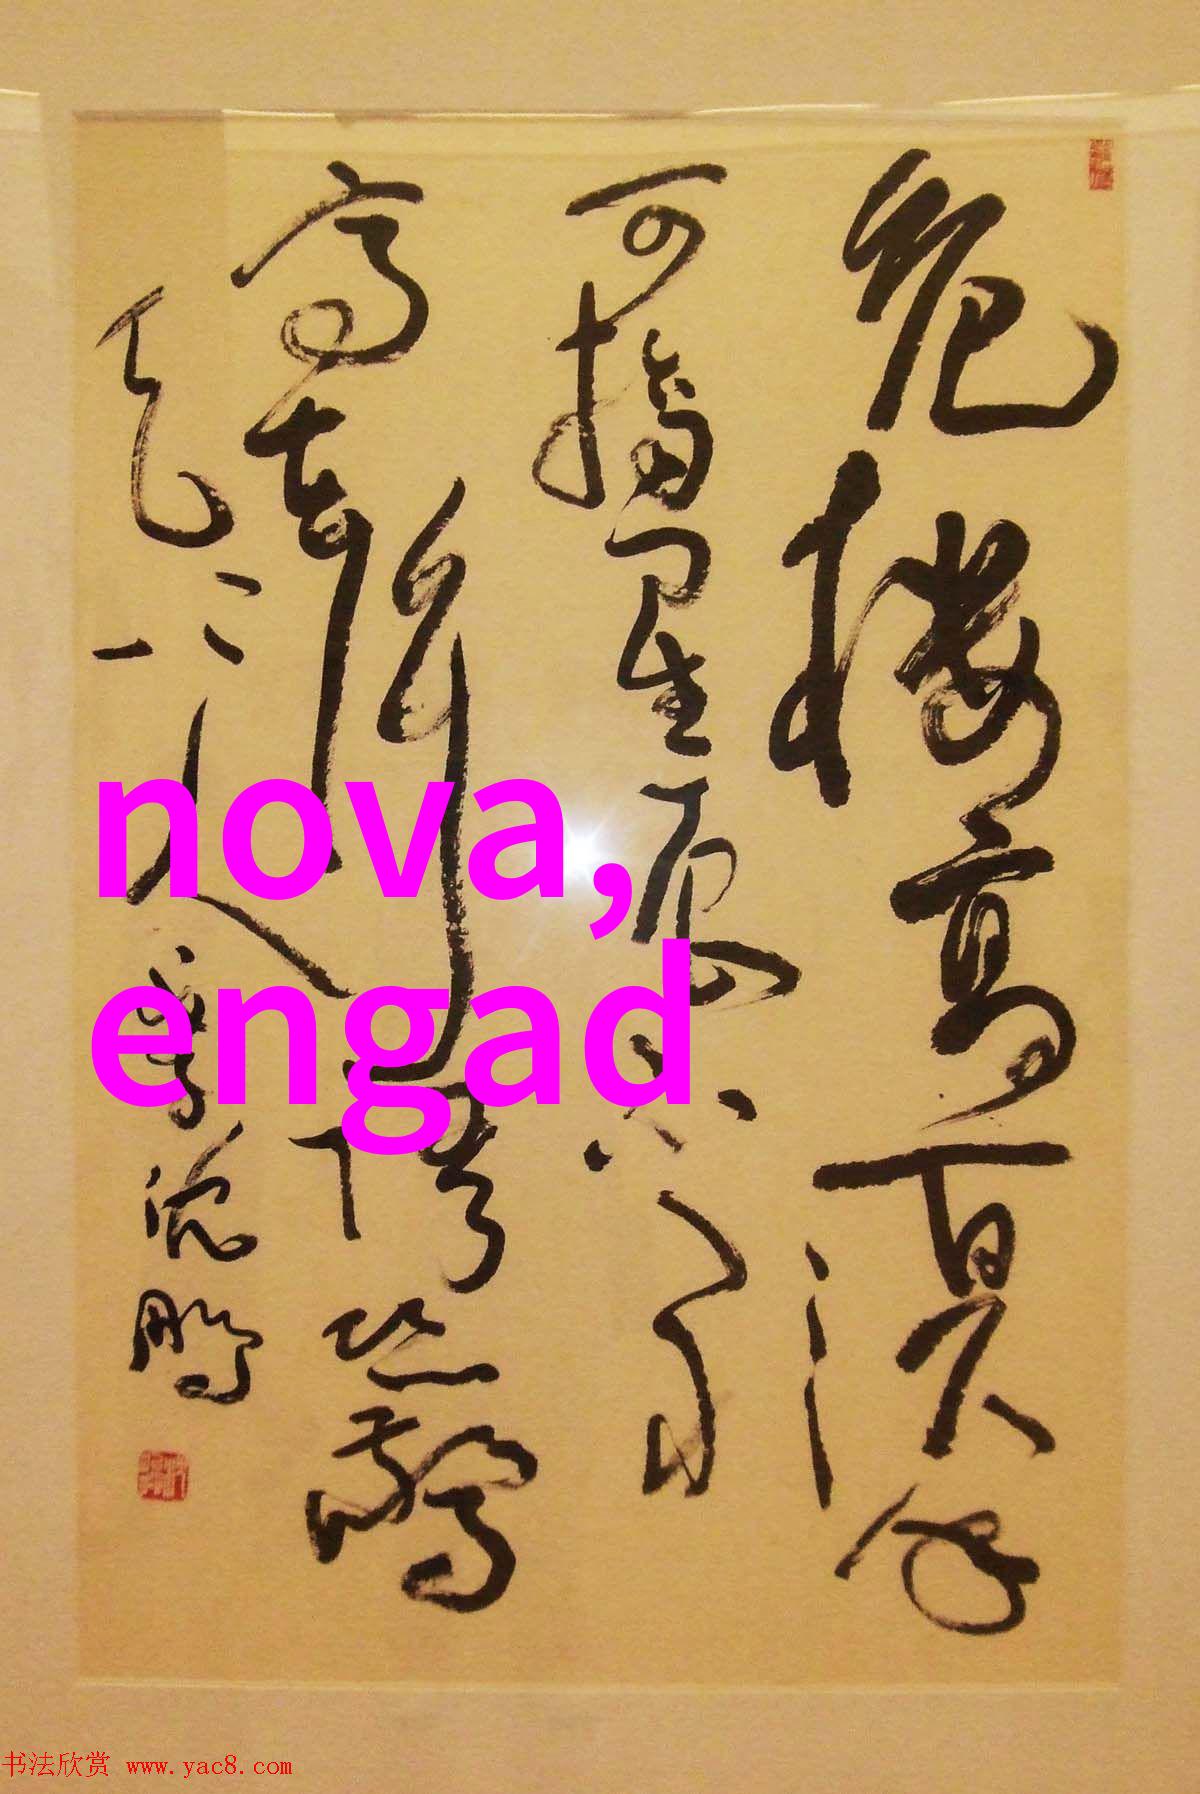 危樓高百尺手
可摘星辰不敢
高聲語恐驚
天上人 沈鵬
nova,
engad
书法欣赏 www.yac8.com